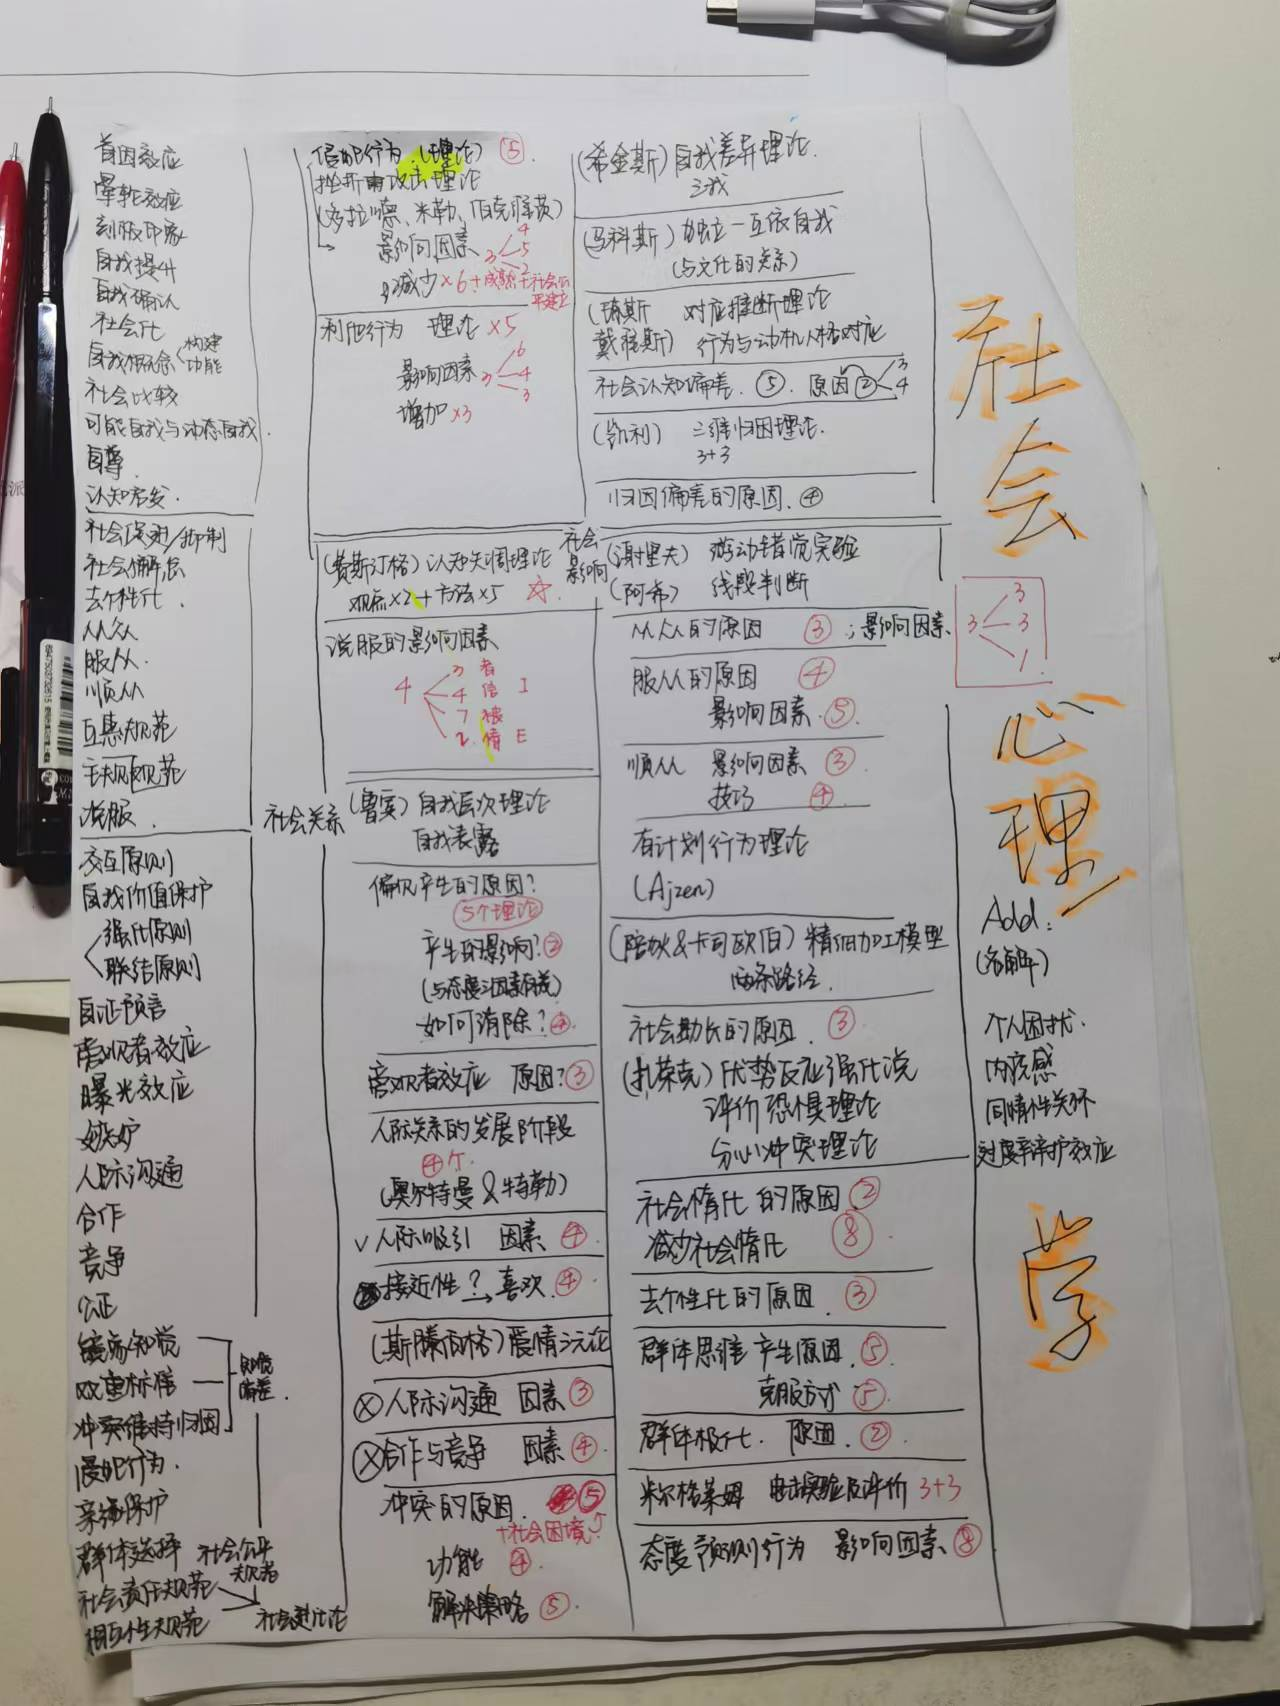 首因效应
晕轮效应
刻板印象
自我提升
自我确认
社会化
自我概念 构建
功能
社会比较
可能自我与动态自我
自尊
认知启发
社会促进/抑制
社会懈怠
去个性化
从众
服从
顺从
互惠规范
主规范
说服
交互原则
自我价值保护
强化原则
联结原则
自证预言
旁观者效应
曝光效应
嫉妒
人际沟通
合作
竞争
公正
镜像知觉
双重标准
冲突维持归因
知觉偏差
侵犯行为
亲缘保护
群体选择 社会公平规范
社会责任规范
相互性规范 社会进化论
侵犯行为 (理论) ⑤
挫折攻击理论
(多拉德、米勒、伯克维茨)
影响因素 3 4
5
2
减少×6+成熟+社会公平建立
利他行为 理论×5
影响因素 3 6
4
3
增加×3
(费斯汀格) 认知失调理论
观点×2+方法×5
说服的影响因素
4 3 者
4 信 I
7 被
2 情 E
社会关系
(鲁宾) 自我层次理论
自我表露
偏见产生的原因?
5个理论
产生的影响? ②
(与态度三因素有关)
如何消除? ④
旁观者效应 原因? ③
人际关系的发展阶段
④个
(奥尔特曼&特勒)
√人际吸引 因素 ④
接近性?→喜欢 ④
(斯滕伯格) 爱情三元论
人际沟通 因素 ③
合作与竞争 因素 ④
冲突的原因 ⑤
+社会困境
功能 ④
解决策略 ⑤
(希金斯) 自我差异理论
三我
(马科斯) 独立-互依自我
(与文化的关系)
(琼斯 对应推断理论
戴维斯) 行为与动机人格对应
社会认知偏差 ⑤. 原因② 3
4
(凯利) 三维归因理论
3+3
归因偏差的原因 ④
社会影响
(谢里夫) 游动错觉实验
(阿希) 线段判断
从众的原因 ③; 影响因素
3 3
3
1
服从的原因 ④
影响因素 ⑤
顺从 影响因素 ③
技巧 ④
有计划行为理论
(Ajzen)
(陪狄&卡司欧伯) 精细加工模型
两条路径
社会助长的原因 ③
(扎荣克) 优势反应强化说
评价恐惧理论
分心冲突理论
社会惰化的原因 ②
减少社会惰化 ⑧
去个性化的原因 ③
群体思维 产生原因 ⑤
克服方式 ⑤
群体极化 原因 ②
米尔格莱姆 电击实验及评价 3+3
态度预测行为 影响因素 ⑧
社会心理学
Add:
(名解)
个人困扰
内疚感
同情性关怀
过度辩护效应